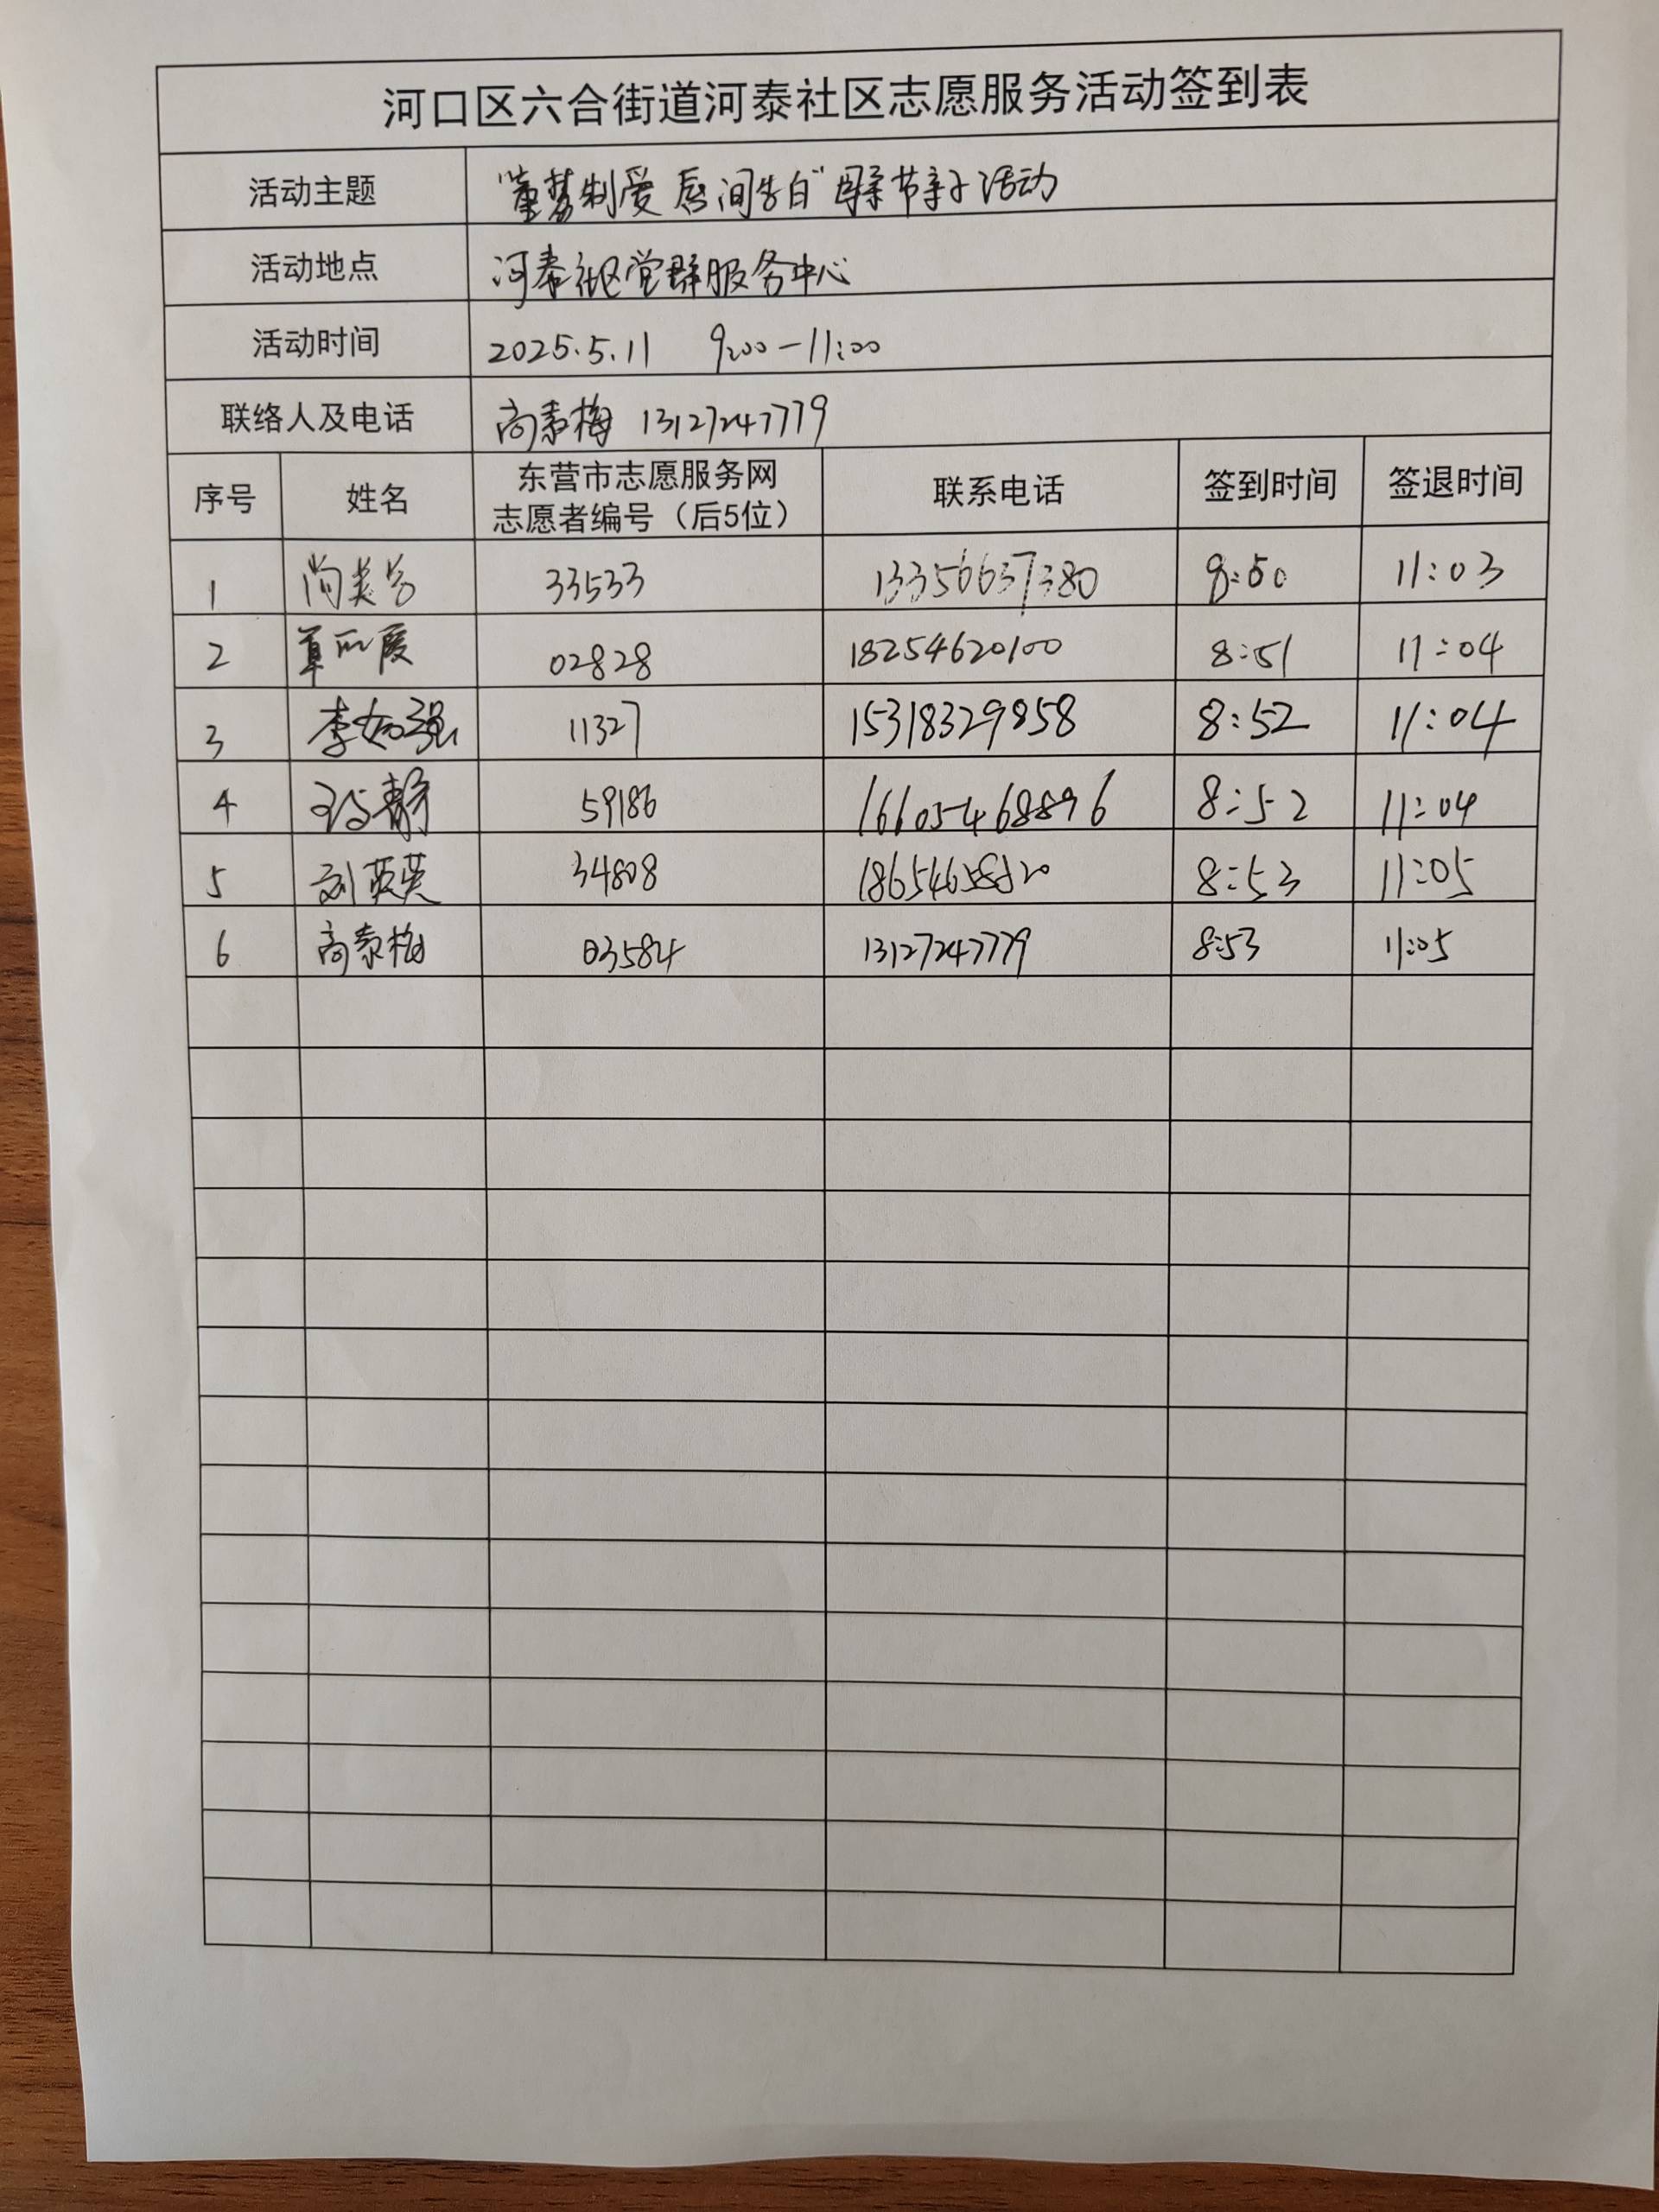 河口区六合街道河泰社区志愿服务活动签到表
活动主题 "童梦制爱 唇间告白"母亲节亲子活动
活动地点 河泰社区党群服务中心
活动时间 2025.5.11 9:00-11:00
联络人及电话 高素梅 13127247779
序号 姓名 东营市志愿服务网 志愿者编号（后5位） 联系电话 签到时间 签退时间
1 33533 13356637380 8:50 11:03
2 02828 18254620100 8:51 11:04
3 李如强 11327 15318329858 8:52 11:04
4 静 59186 16605468896 8:52 11:04
5 刘英英 34808 8:53 11:05
6 高素梅 03584 13127247779 8:53 11:05